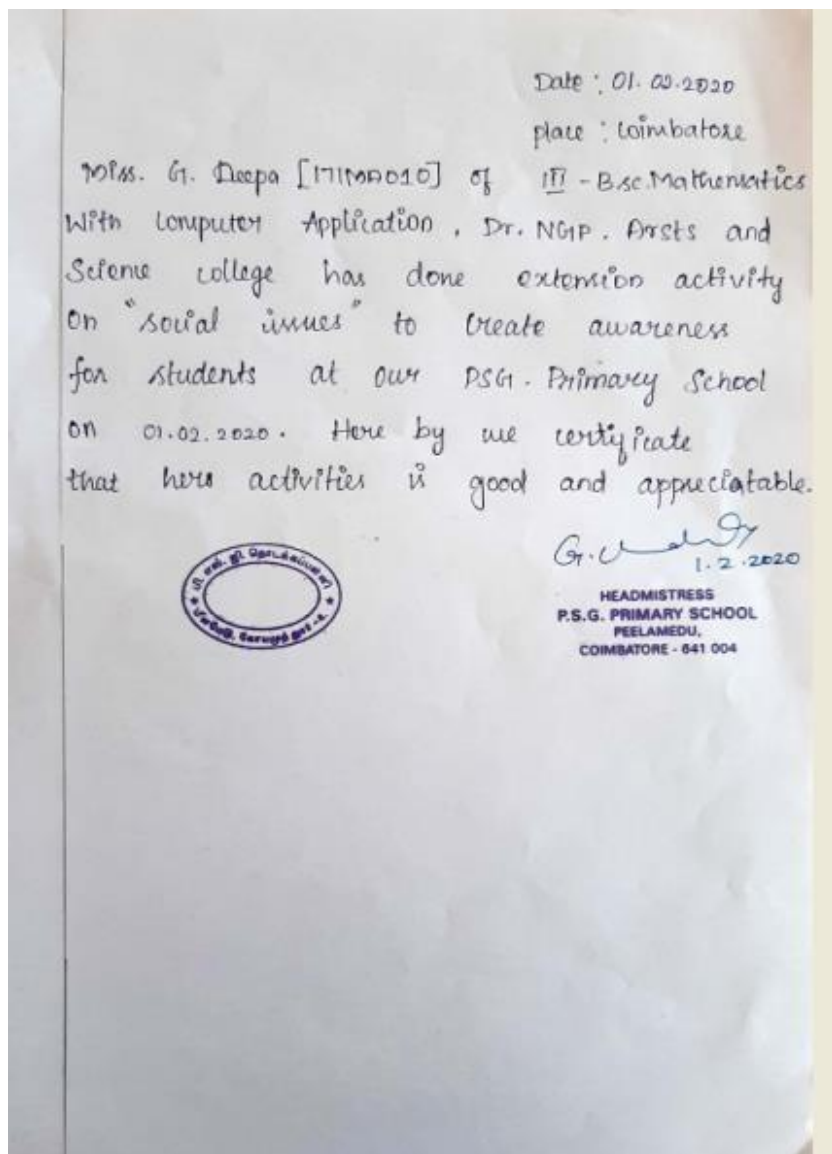 Date : 01.02.2020
place : Coimbatore
Miss. G. Deepa [171MA010] of III - B.sc.Mathematics
With Computer Application, Dr. NGP. Arsts and
Science college has done extension activity
on "social issues" to Create awareness
for students at our PSG. Primary School
on 01.02.2020. Here by we certificate
that hers activities is good and appreciatable.
பி. எஸ். ஜி. தொடக்கப்பள்ளி
பீளமேடு, கோயமுத்தூர் -4.
1.2.2020
HEADMISTRESS
P.S.G. PRIMARY SCHOOL
PEELAMEDU,
COIMBATORE - 641 004